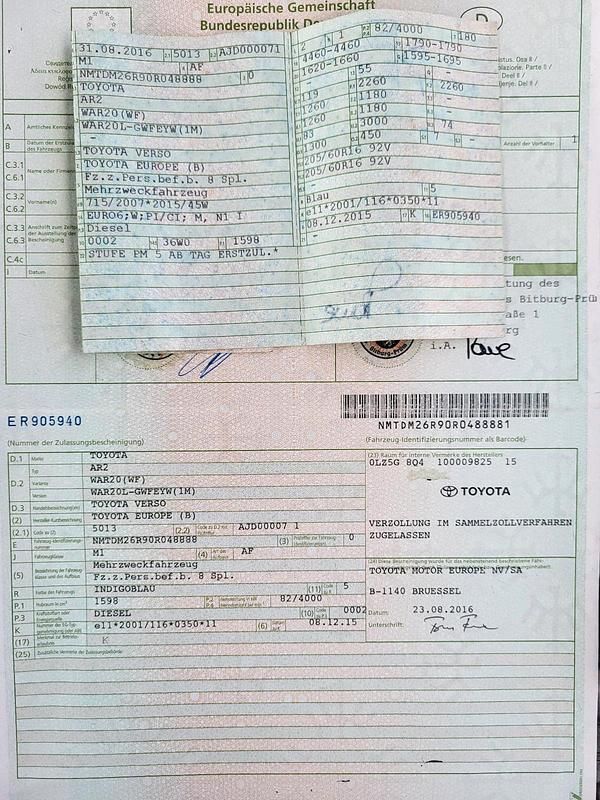 Europäische Gemeinschaft
Bundesrepublik De
D
31.08.2016 5013 AJD000071
M1 AF
NMTDM26R90R048888 0
TOYOTA
AR2
WAR20(WF)
WAR20L-GWFEYW(1M)
–
TOYOTA VERSO
TOYOTA EUROPE (B)
Fz.z.Pers.bef.b. 8 Spl.
Mehrzweckfahrzeug
715/2007*2015/45W
EURO6;W;PI/CI; M, N1 I
Diesel
0002 36W0 1598
STUFE PM 5 AB TAG ERSTZUL.*
2 1 82/4000 180
4460-4460 1790-1790
1620-1660 1595-1695
– 55 –
119 2260 2260
1260 1180 –
1260 1180 –
83 3000 74
1300 450 7 –
205/60R16 92V
205/60R16 92V
–
Blau 5
e11*2001/116*0350*11
08.12.2015 K ER905940
–
A Amtliches Kennze
B Datum der Erstzu
des Fahrzeugs
Anzahl der Vorhalter 1
C.3.1
C.6.1
Name oder Firm
C.3.2
C.6.2
Vorname(n)
C.3.3
C.6.3
Anschrift zum Zeit
der Ausstellung der
Bescheinigung
C.4c
I Datum
esen.
tung des
s Bitburg-Prüm
aße 1
rg
i.A.
Bitburg-Prüm
ER905940
(Nummer der Zulassungsbescheinigung)
NMTDM26R90R0488881
(Fahrzeug-Identifizierungsnummer als Barcode)
D.1 Marke TOYOTA
Typ AR2
D.2 Variante WAR20(WF)
Version WAR20L-GWFEYW(1M)
D.3 Handelsbezeichnung(en) TOYOTA VERSO
(2) Hersteller-Kurzbezeichnung TOYOTA EUROPE (B)
(2.1) Code zu (2) 5013 (2.2) Code zu D.2 mit Prüfziffer AJD00007 1
E Fahrzeug-Identifizierungsnummer NMTDM26R90R048888 (3) Prüfziffer zur Fahrzeug-Identifizierungsnr. 0
J Fahrzeugklasse M1 (4) Art des Aufbaus AF
(5) Bezeichnung der Fahrzeugklasse und des Aufbaus Mehrzweckfahrzeug
Fz.z.Pers.bef.b. 8 Spl.
R Farbe des Fahrzeugs INDIGOBLAU (11) Code zu R 5
P.1 Hubraum in cm³ 1598 P.2 P.4 82/4000
P.3 Kraftstoffart oder Energiequelle DIESEL (10) Code zu P.3 0002
K e11*2001/116*0350*11 (6) Datum zu K 08.12.15
(17) Merkmal zur Betriebserlaubnis K
(25) Zusätzliche Vermerke der Zulassungsbehörde:
(23) Raum für interne Vermerke des Herstellers
0LZ5G 8Q4 100009825 15
TOYOTA
VERZOLLUNG IM SAMMELZOLLVERFAHREN
ZUGELASSEN
(24) Diese Bescheinigung wurde für das nebenstehend beschriebene
TOYOTA MOTOR EUROPE NV/SA
B-1140 BRUESSEL
Datum: 23.08.2016
Unterschrift: